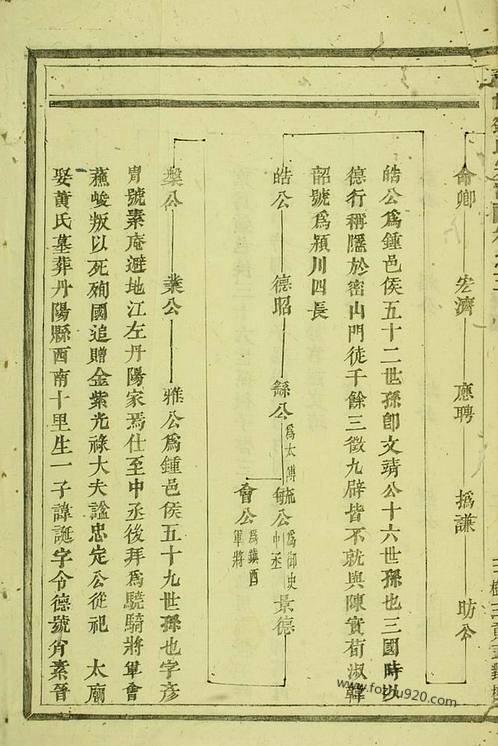 命卿 宏濟 應聘 撝謙 助公
皓公爲鍾邑侯五十二世孫卽文靖公十六世孫也三國時以
德行稱隱於密山門徒千餘三徵九辟皆不就與陳實荀淑韓
韶號爲潁川四長
皓公 德昭 繇公 爲太傅 毓公 爲御史中丞 景德
會公 爲鎮西軍將
槩公 業公 雅公爲鍾邑侯五十九世孫也字彥
胄號素庵避地江左丹陽家焉仕至中丞後拜爲驍騎將軍會
蘓峻叛以死殉國追贈金紫光祿大夫謚忠定公從祀 太廟
娶黃氏墓葬丹陽縣西南十里生一子諱誕字令德號肖素晉
www.foryu920.com